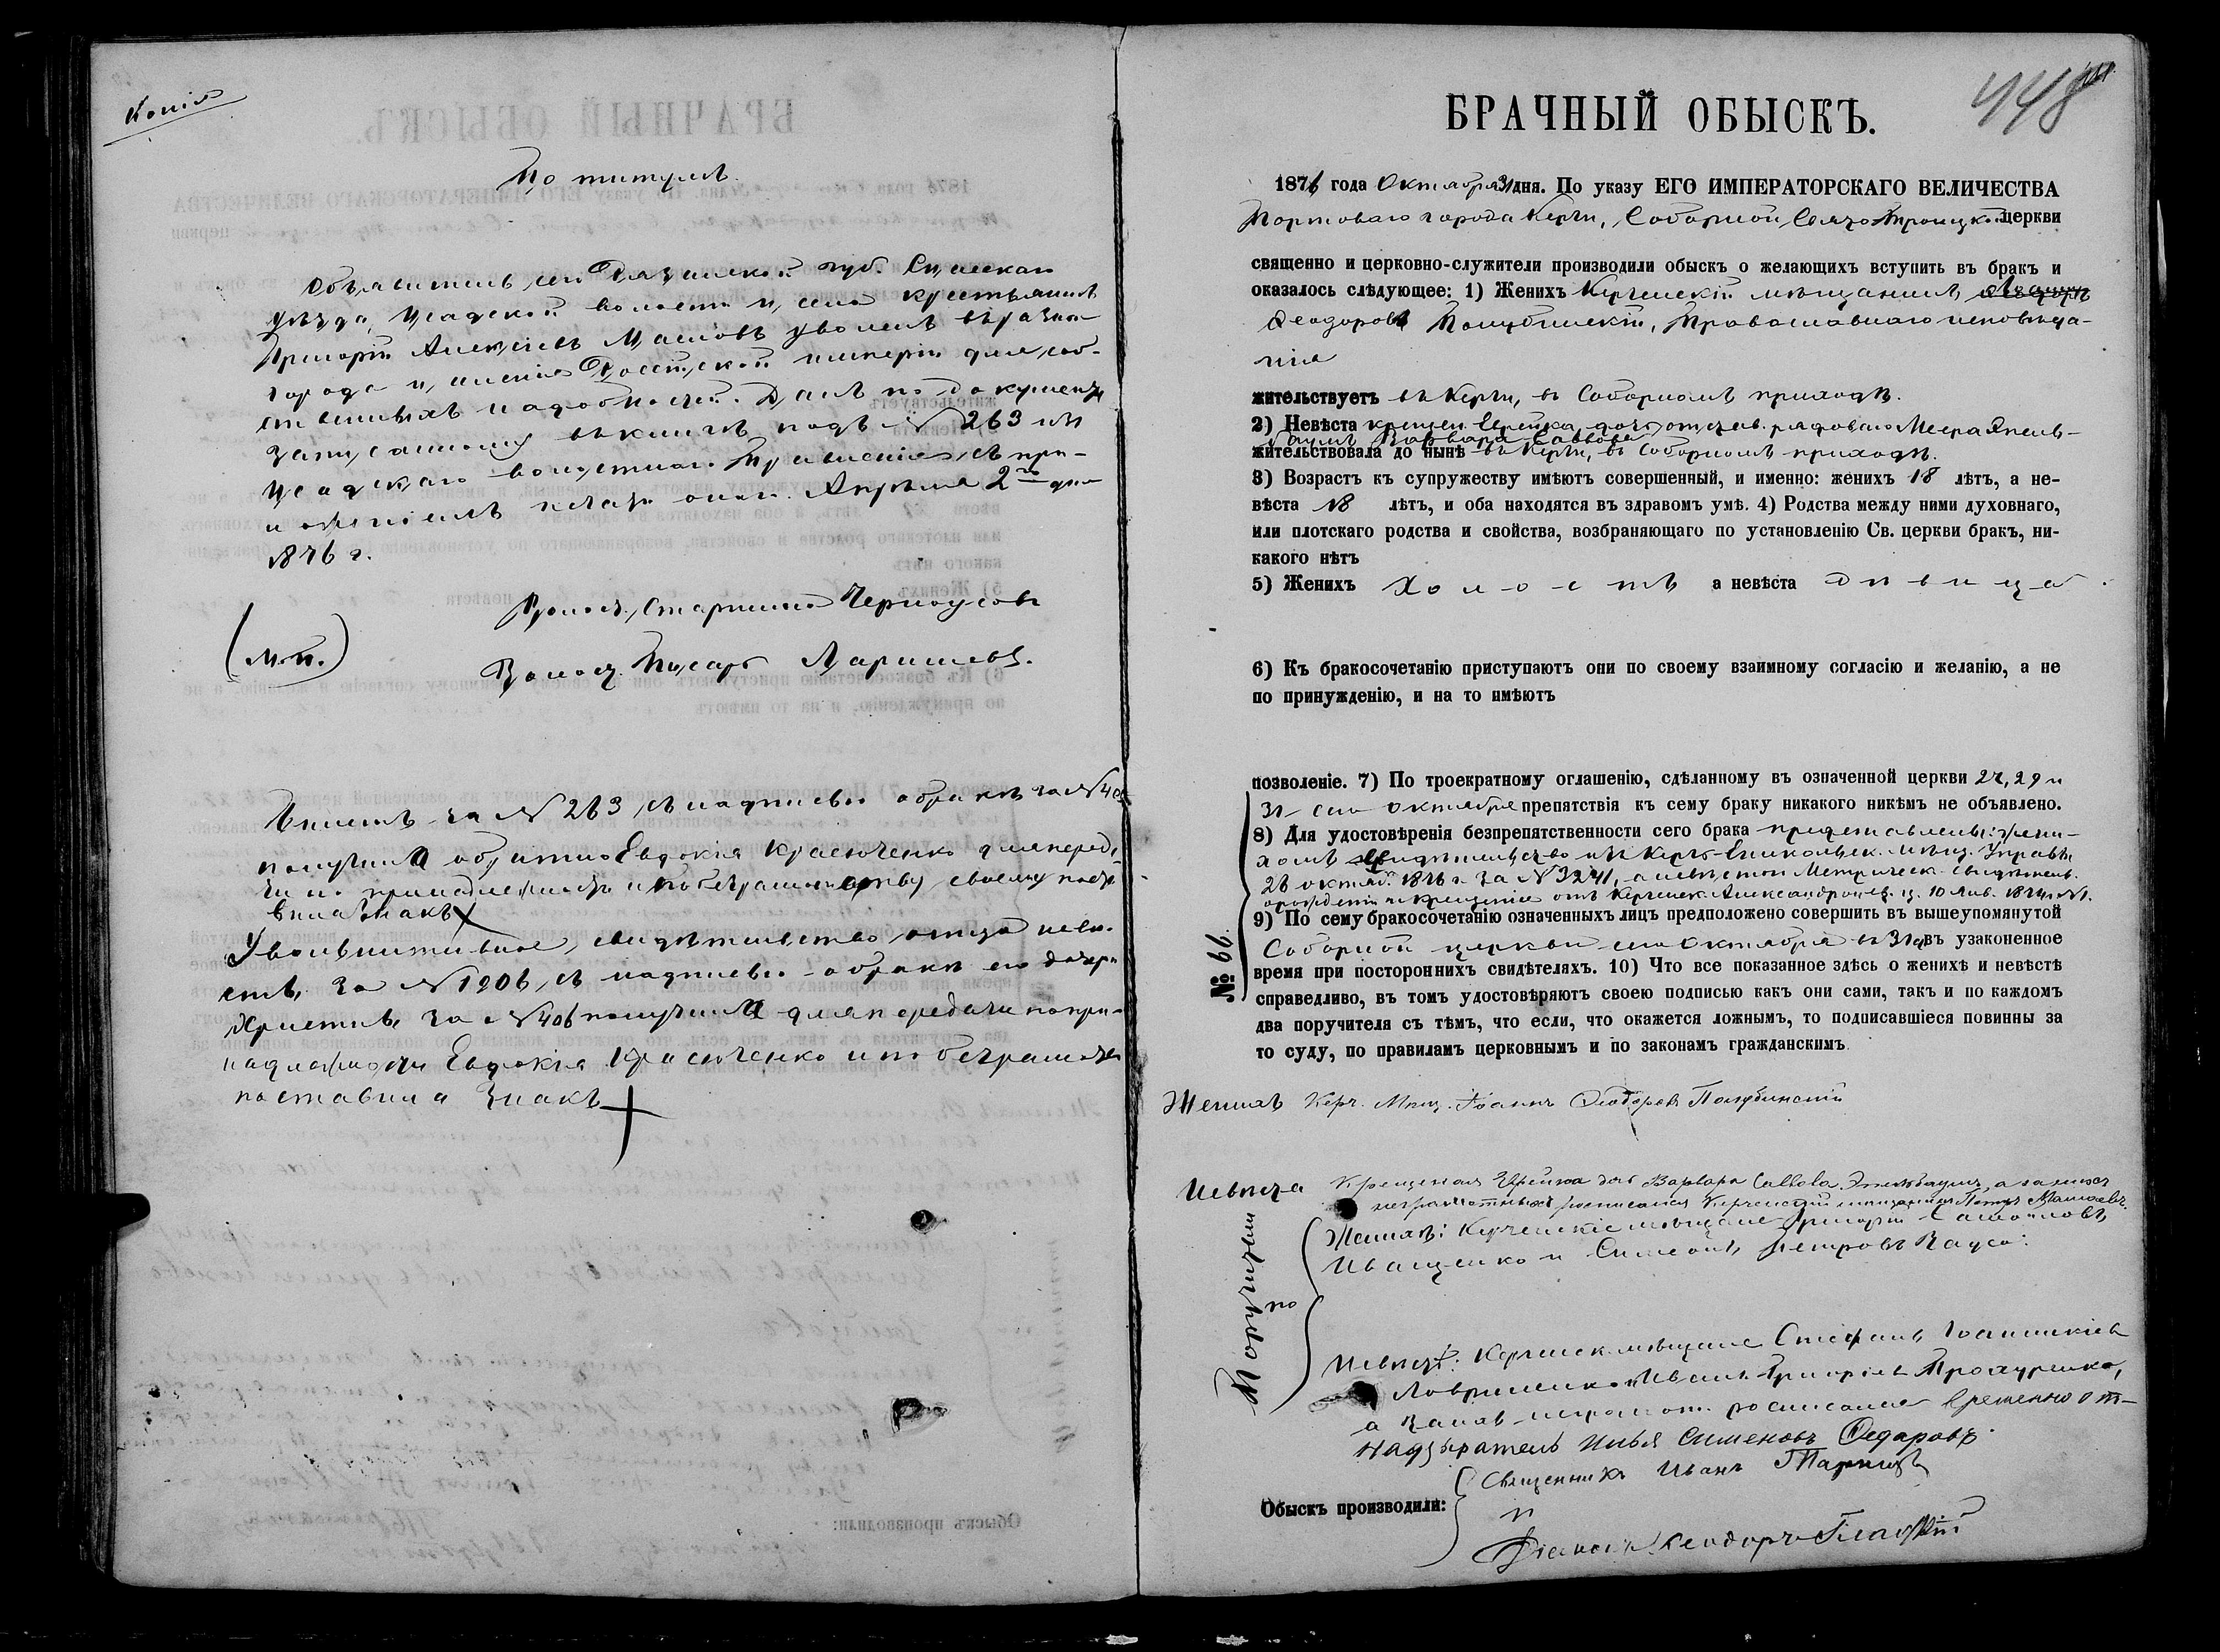 Копія
По титулѣ.
Объявитель сего Рязанской губ. Спасскаго
уѣзда, Исадской волости и села крестьянинъ
Григорій Алексѣевъ уволенъ въ разные
города и селенія Россійской имперіи для соб-
ственныхъ надобностей. Данъ по документу
записанному въ книгѣ подъ № 263 изъ
Исадскаго волостнаго Правленія съ при-
ложеніемъ печати онаго. Апрѣля 2го дня
1876 г.
Волост. Старшина Черноусовъ
(М.П.)
Волост. Писарь
Билетъ за № 263, съ надписью о бракѣ за № 406
получила обратно Евдокія Красюченко для переда-
чи по принадлежности и по безграмотству своему поста-
вила знакъ X
Увольнительное свидѣтельство отца невѣ-
сты, за № 1906, съ надписью о бракѣ его дочери
Христины за № 406 получила для передачи по при-
надлежности Евдокія Красюченко и по безграмотству
поставила знакъ +
448
БРАЧНЫЙ ОБЫСКЪ.
1876 года Октября 31 дня. По указу ЕГО ИМПЕРАТОРСКАГО ВЕЛИЧЕСТВА
Портоваго города Керчи, Соборной Свято Троицкой церкви
священно и церковно-служители производили обыскъ о желающихъ вступить въ бракъ и
оказалось слѣдующее: 1) Женихъ Керченскій мѣщанинъ
Ѳеодоровъ Полубинскій, Православнаго исповѣда-
нія
жительствуетъ въ Керчи, въ Соборномъ приходѣ.
2) Невѣста крещен. Еврейка, дочь отстав. рядоваго Меера Эпель-
баумъ Варвара Саввова
жительствовала до нынѣ въ Керчи, въ Соборномъ приходѣ.
3) Возрастъ къ супружеству имѣютъ совершенный, и именно: женихъ 18 лѣтъ, а не-
вѣста 18 лѣтъ, и оба находятся въ здравомъ умѣ. 4) Родства между ними духовнаго,
или плотскаго родства и свойства, возбраняющаго по установленію Св. церкви бракъ, ни-
какого нѣтъ
5) Женихъ холостъ а невѣста дѣвица.
6) Къ бракосочетанію приступаютъ они по своему взаимному согласію и желанію, а не
по принужденію, и на то имѣютъ
позволеніе. 7) По троекратному оглашенію, сдѣланному въ означенной церкви 24, 29 и
31 сего октября препятствія къ сему браку никакого никѣмъ не объявлено.
8) Для удостовѣренія безпрепятственности сего брака представлены: жени-
хомъ свидѣтельство изъ Керчь-Еникольск. мѣщ. Управы
28 октяб. 1876 г. за № 3241, а невѣстою Метрическ. свидѣтельс.
о рожденіи и крещеніи отъ Керченск. Александроневс. ц. 10 Янв. 1874 г. № 1.
9) По сему бракосочетанію означенныхъ лицъ предположено совершить въ вышеупомянутой
Соборной церкви сего Октября въ 31 д. въ узаконенное
время при постороннихъ свидѣтеляхъ. 10) Что все показанное здѣсь о женихѣ и невѣстѣ
справедливо, въ томъ удостовѣряютъ своею подписью какъ они сами, такъ и по каждомъ
два поручителя съ тѣмъ, что если, что окажется ложнымъ, то подписавшіеся повинны за
то суду, по правиламъ церковнымъ и по законамъ гражданскимъ
№ 69.
Женихъ Керч. Мѣщ. Іоаннъ Ѳеодоровъ Полубинскій
Невѣста Крещеная Еврейка Варвара Саввова Эпельбаумъ, а за нихъ
неграмотныхъ росписался Керченскій мѣщанинъ Петръ
Поручители
по
Женихѣ: Керченскіе мѣщане Григорій Самойловъ
Иващенко и Симеонъ Петровъ
Невѣстѣ: Керченск. мѣщане Стефанъ Іоанникіевъ
Лавриненко и Иванъ Григорьевъ Прохуренко,
а за нихъ неграмотн. росписался временно от-
надзиратель Илья Сименовъ Федаровъ.
Обыскъ производили:
Священникъ Иванъ
и
Діаконъ Ѳеодоръ